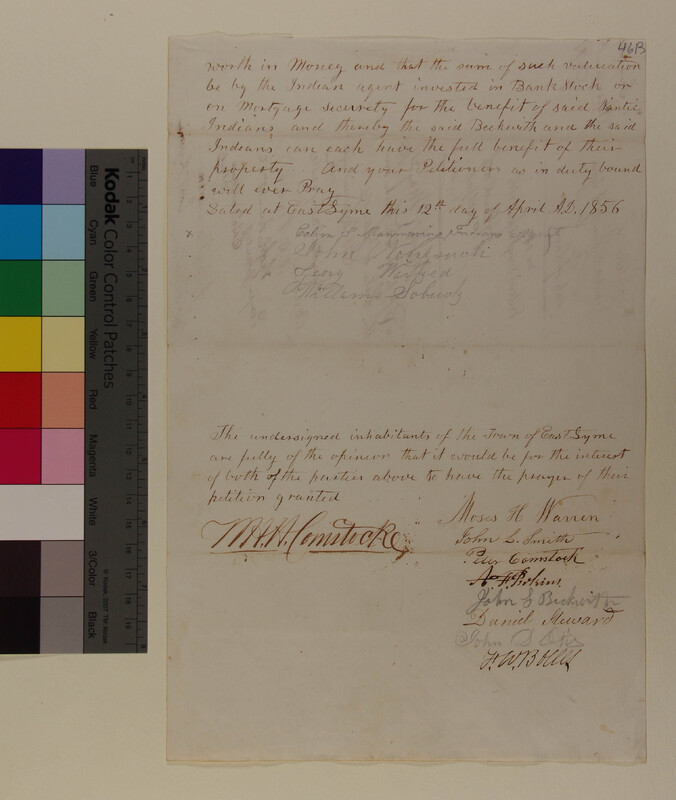 46B
worth in Money and that the sum of such valueation
be by the Indian agent invested in Bank Stock or
on Mortgage security for the benefit of said Niantic
Indians and thereby the said Beckwith and the said
Indians can each have the full benefit of their
property. And your Petitioners as in duty bound
will ever Pray
Dated at East Lyme this 12th day of April AD, 1856
Indians agent
John
William
The undersigned inhabitants of the Town of East Lyme
are fully of the opinion that it would be for the interest
of both of the parties above to have the prayer of their
petition granted
Moses H Warren
W.H.H. Comstock
John L. Smith
Peter Comstock
A. F. Perkins
John S Beckwith
Daniel Steward
John D
F. W. Bolles
Kodak Color Control Patches
Blue
Cyan
Green
Yellow
Red
Magenta
White
3/Color
Black
© Kodak, 2007 TM: Kodak